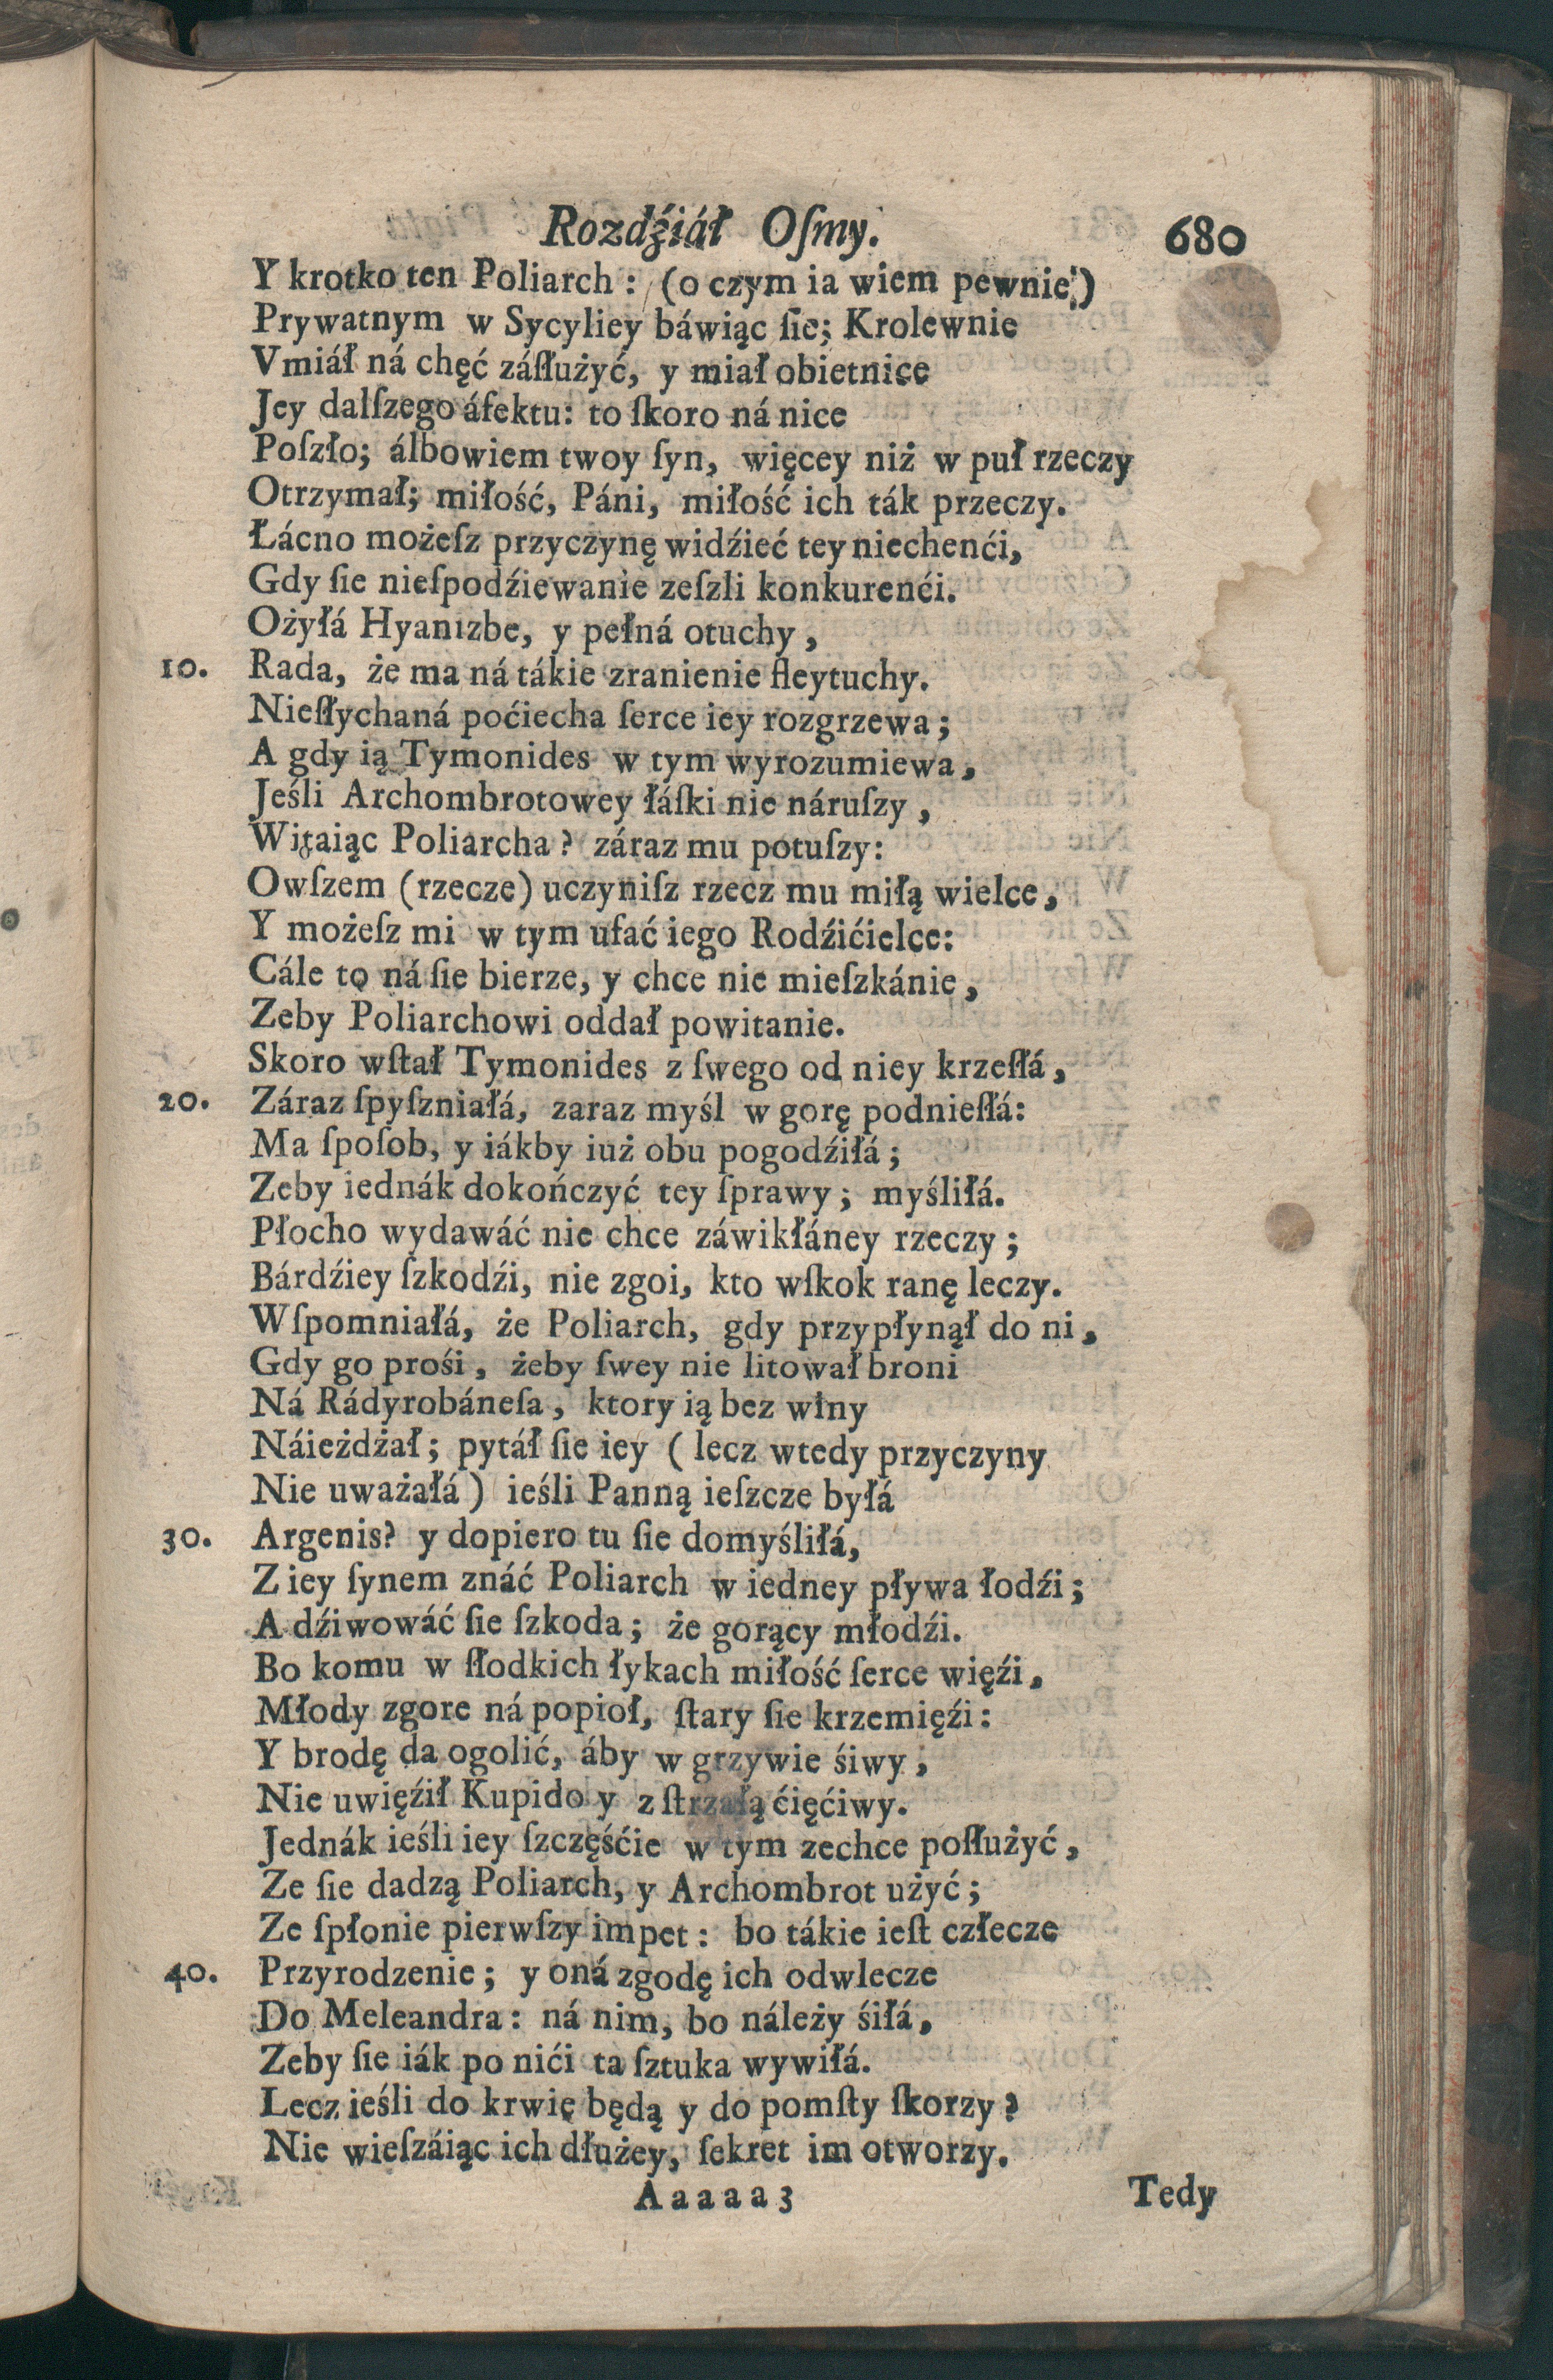 Rozdźiáł Oſmy. 680
Y krotko ten Poliarch: (o czym ia wiem pewnie:)
Prywatnym w Sycyliey báwiąc ſie; Krolewnie
Vmiáł ná chęć záſłużyć, y miał obietnice
Jey dalſzego áfektu: to ſkoro ná nice
Poſzło; álbowiem twoy ſyn, więcey niż w puł rzeczy
Otrzymał; miłość, Páni, miłość ich ták przeczy.
Łácno możeſz przyczynę widźieć tey niechenći,
Gdy ſie nieſpodźiewanie zeſzli konkurenći.
Ożyłá Hyanizbe, y pełná otuchy,
10. Rada, że ma ná tákie zranienie fleytuchy.
Nieſłychaná poćiecha ſerce iey rozgrzewa;
A gdy ią Tymonides w tym wyrozumiewa,
Jeśli Archombrotowey łáſki nie náruſzy,
Witaiąc Poliarcha? záraz mu potuſzy:
Owſzem (rzecze) uczyniſz rzecz mu miłą wielce,
Y możeſz mi w tym ufać iego Rodźićielce:
Cále to ná ſie bierze, y chce nie mieſzkánie,
Zeby Poliarchowi oddał powitanie.
Skoro wſtał Tymonides z ſwego od niey krzeſłá,
20. Záraz ſpyſzniałá, zaraz myśl w gorę podnieſłá:
Ma ſpoſob, y iákby iuż obu pogodźiłá;
Zeby iednák dokończyć tey ſprawy; myśliłá.
Płocho wydawáć nie chce záwikłáney rzeczy;
Bárdźiey ſzkodźi, nie zgoi, kto wſkok ranę leczy.
Wſpomniałá, że Poliarch, gdy przypłynął do ni,
Gdy go prośi, żeby ſwey nie litował broni
Ná Rádyrobáneſa, ktory ią bez winy
Náieżdżał; pytáł ſie iey (lecz wtedy przyczyny
Nie uważałá) ieśli Panną ieſzcze byłá
30. Argenis? y dopiero tu ſie domyśliłá,
Z iey ſynem znáć Poliarch w iedney pływa łodźi;
A dźiwowáć ſie ſzkoda; że gorący młodźi.
Bo komu w ſłodkich łykach miłość ſerce więźi,
Młody zgore ná popioł, ſtary ſie krzemięźi:
Y brodę da ogolić, áby w grzywie śiwy,
Nie uwięźił Kupido y z ſtrzałą ćięćiwy.
Jednák ieśli iey ſzczęśćie w tym zechce poſłużyć,
Ze ſie dadzą Poliarch, y Archombrot użyć;
Ze ſpłonie pierwſzy impet: bo tákie ieſt człecze
40. Przyrodzenie; y oná zgodę ich odwlecze
Do Meleandra: ná nim, bo náleży śiłá,
Zeby ſie iák po nići ta ſztuka wywiłá.
Lecz ieśli do krwię będą y do pomſty ſkorzy?
Nie wieſzáiąc ich dłużey, ſekret im otworzy.
Aaaaa3 Tedy